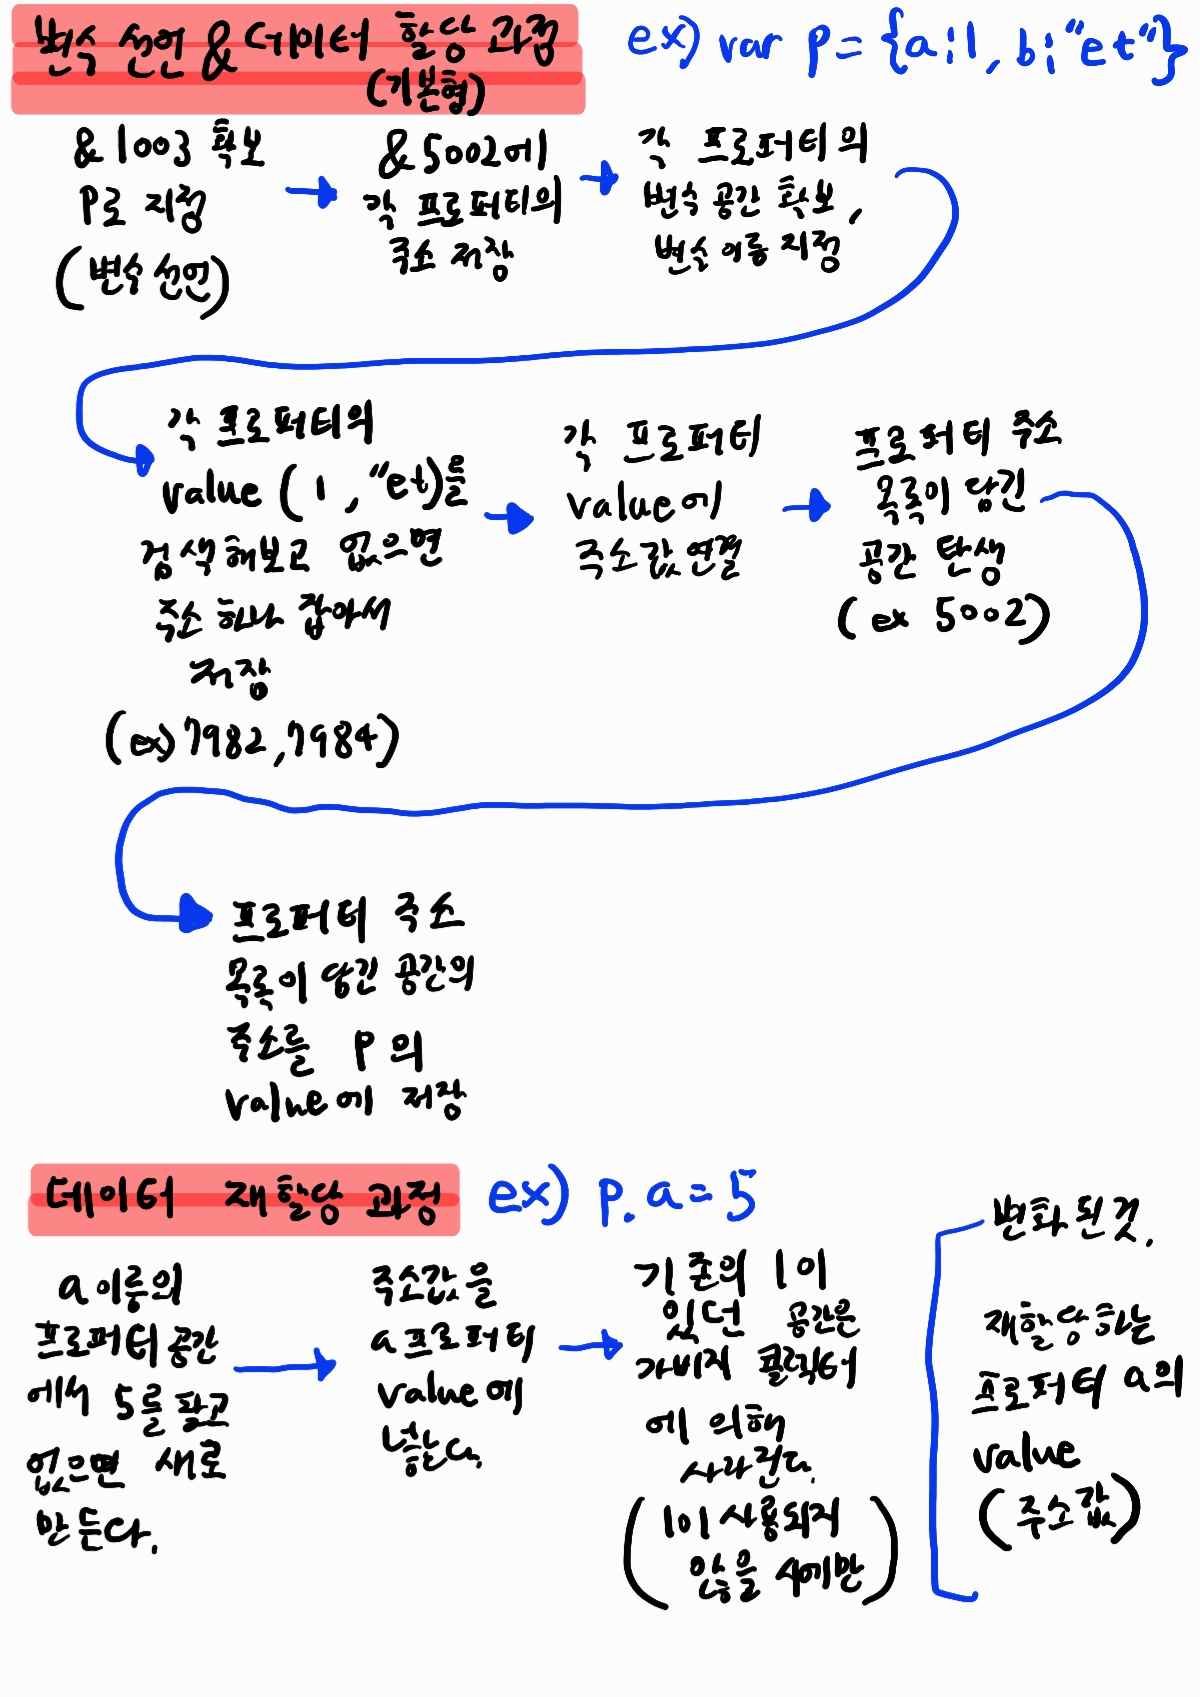 변수 선언 & 데이터 할당 과정
(기본형)
ex) var p = {a:1, b:"et"}
&1003 확보
P로 지정
(변수 선언)
&5002에
각 프로퍼티의
주소 저장
각 프로퍼티의
변수 공간 확보,
변수 이름 지정
각 프로퍼티의
value (1, "et)를
검색해보고 없으면
주소 하나 잡아서
저장
(ex) 7982, 7984)
각 프로퍼티
value에
주소값 연결
프로퍼티 주소
목록이 담긴
공간 탄생
(ex 5002)
프로퍼티 주소
목록이 담긴 공간의
주소를 P의
value에 저장
데이터 재할당 과정
ex) p.a = 5
a 이름의
프로퍼티 공간
에서 5를 찾고
없으면 새로
만든다.
주소값을
a 프로퍼티
value에
넣는다.
기존의 1이
있던 공간은
가비지 콜렉터
에 의해
사라진다.
(1이 사용되지
않을 시에만)
변화된 것.
재할당하는
프로퍼티 a의
value
(주소값)